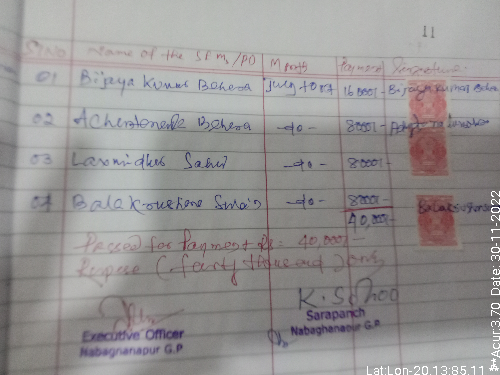 11
Sl No Name of the SPMs/PO Month Payment Signature
01 Bijaya Kumar Behera July to Oct 16000/- Bijaya Kumar Behera
02 Behera -do- 8000/-
03 Laxmidhar Sahu -do- 8000/-
04 Swain -do- 8000/-
40,000/-
Passed for Payment Rs. 40,000/-
Rupees (forty thousand) only
K. Sahoo
Executive Officer
Nabaghanapur G.P
Sarapanch
Nabaghanapur G.P.
Lat:Lon-20.13:85.11
**Acur:3.70 Date. 30-11-2022